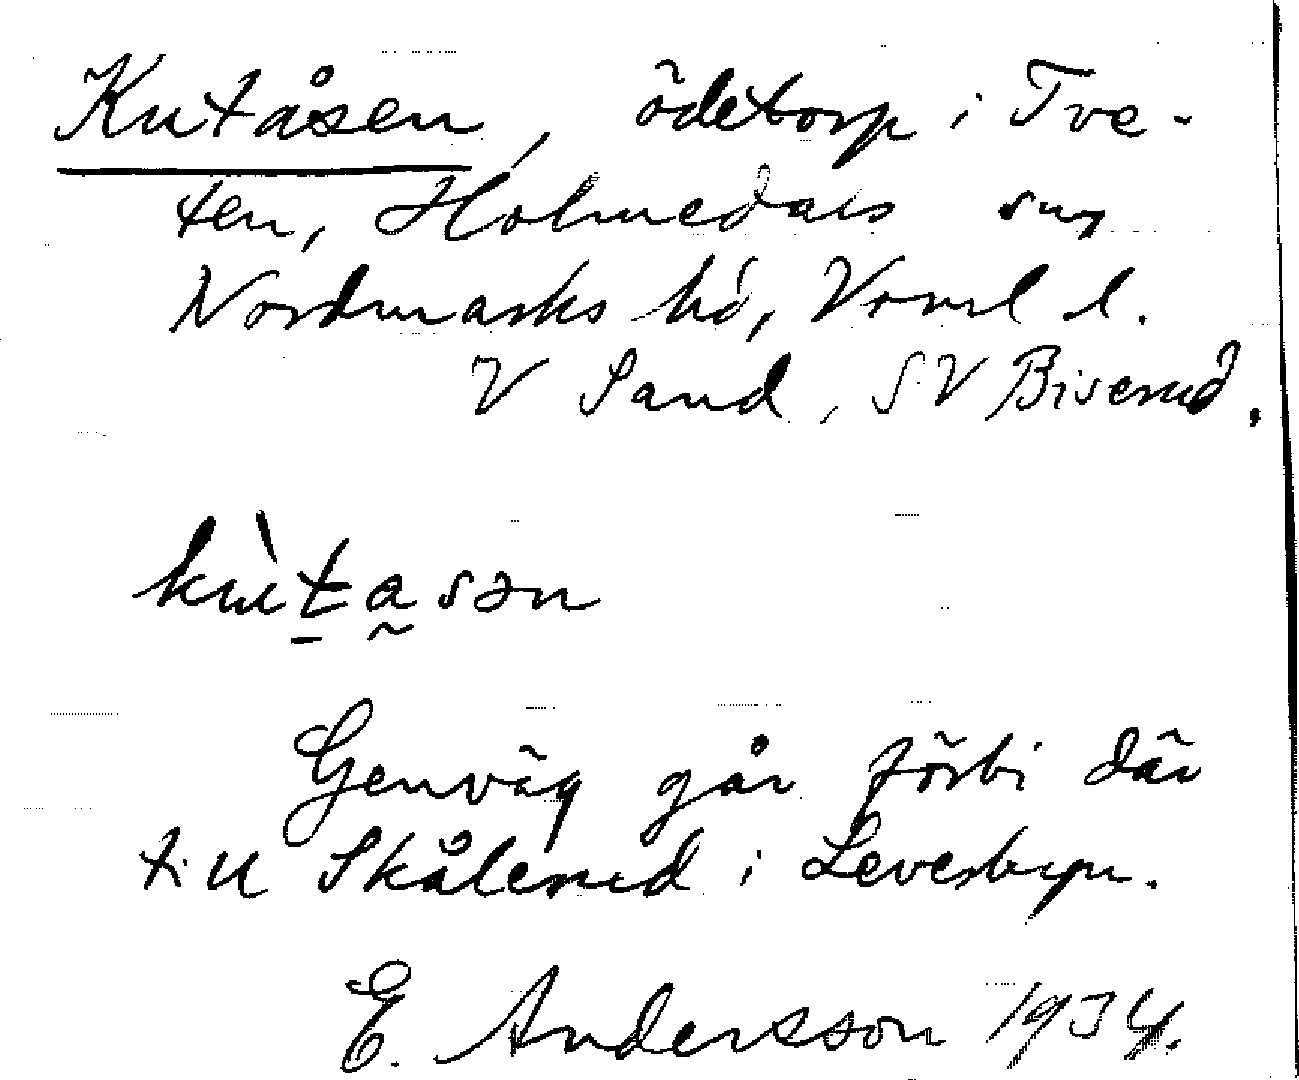 Kutåsen, ödetorp i Tve-
ten, Holmedals sn,
Nordmarks hd, Vrml l.
V Sand, SV Biserud.
kùtasən
Genväg går förbi där
till Skålerud i Leverbyn.
E. Andersson 1934.